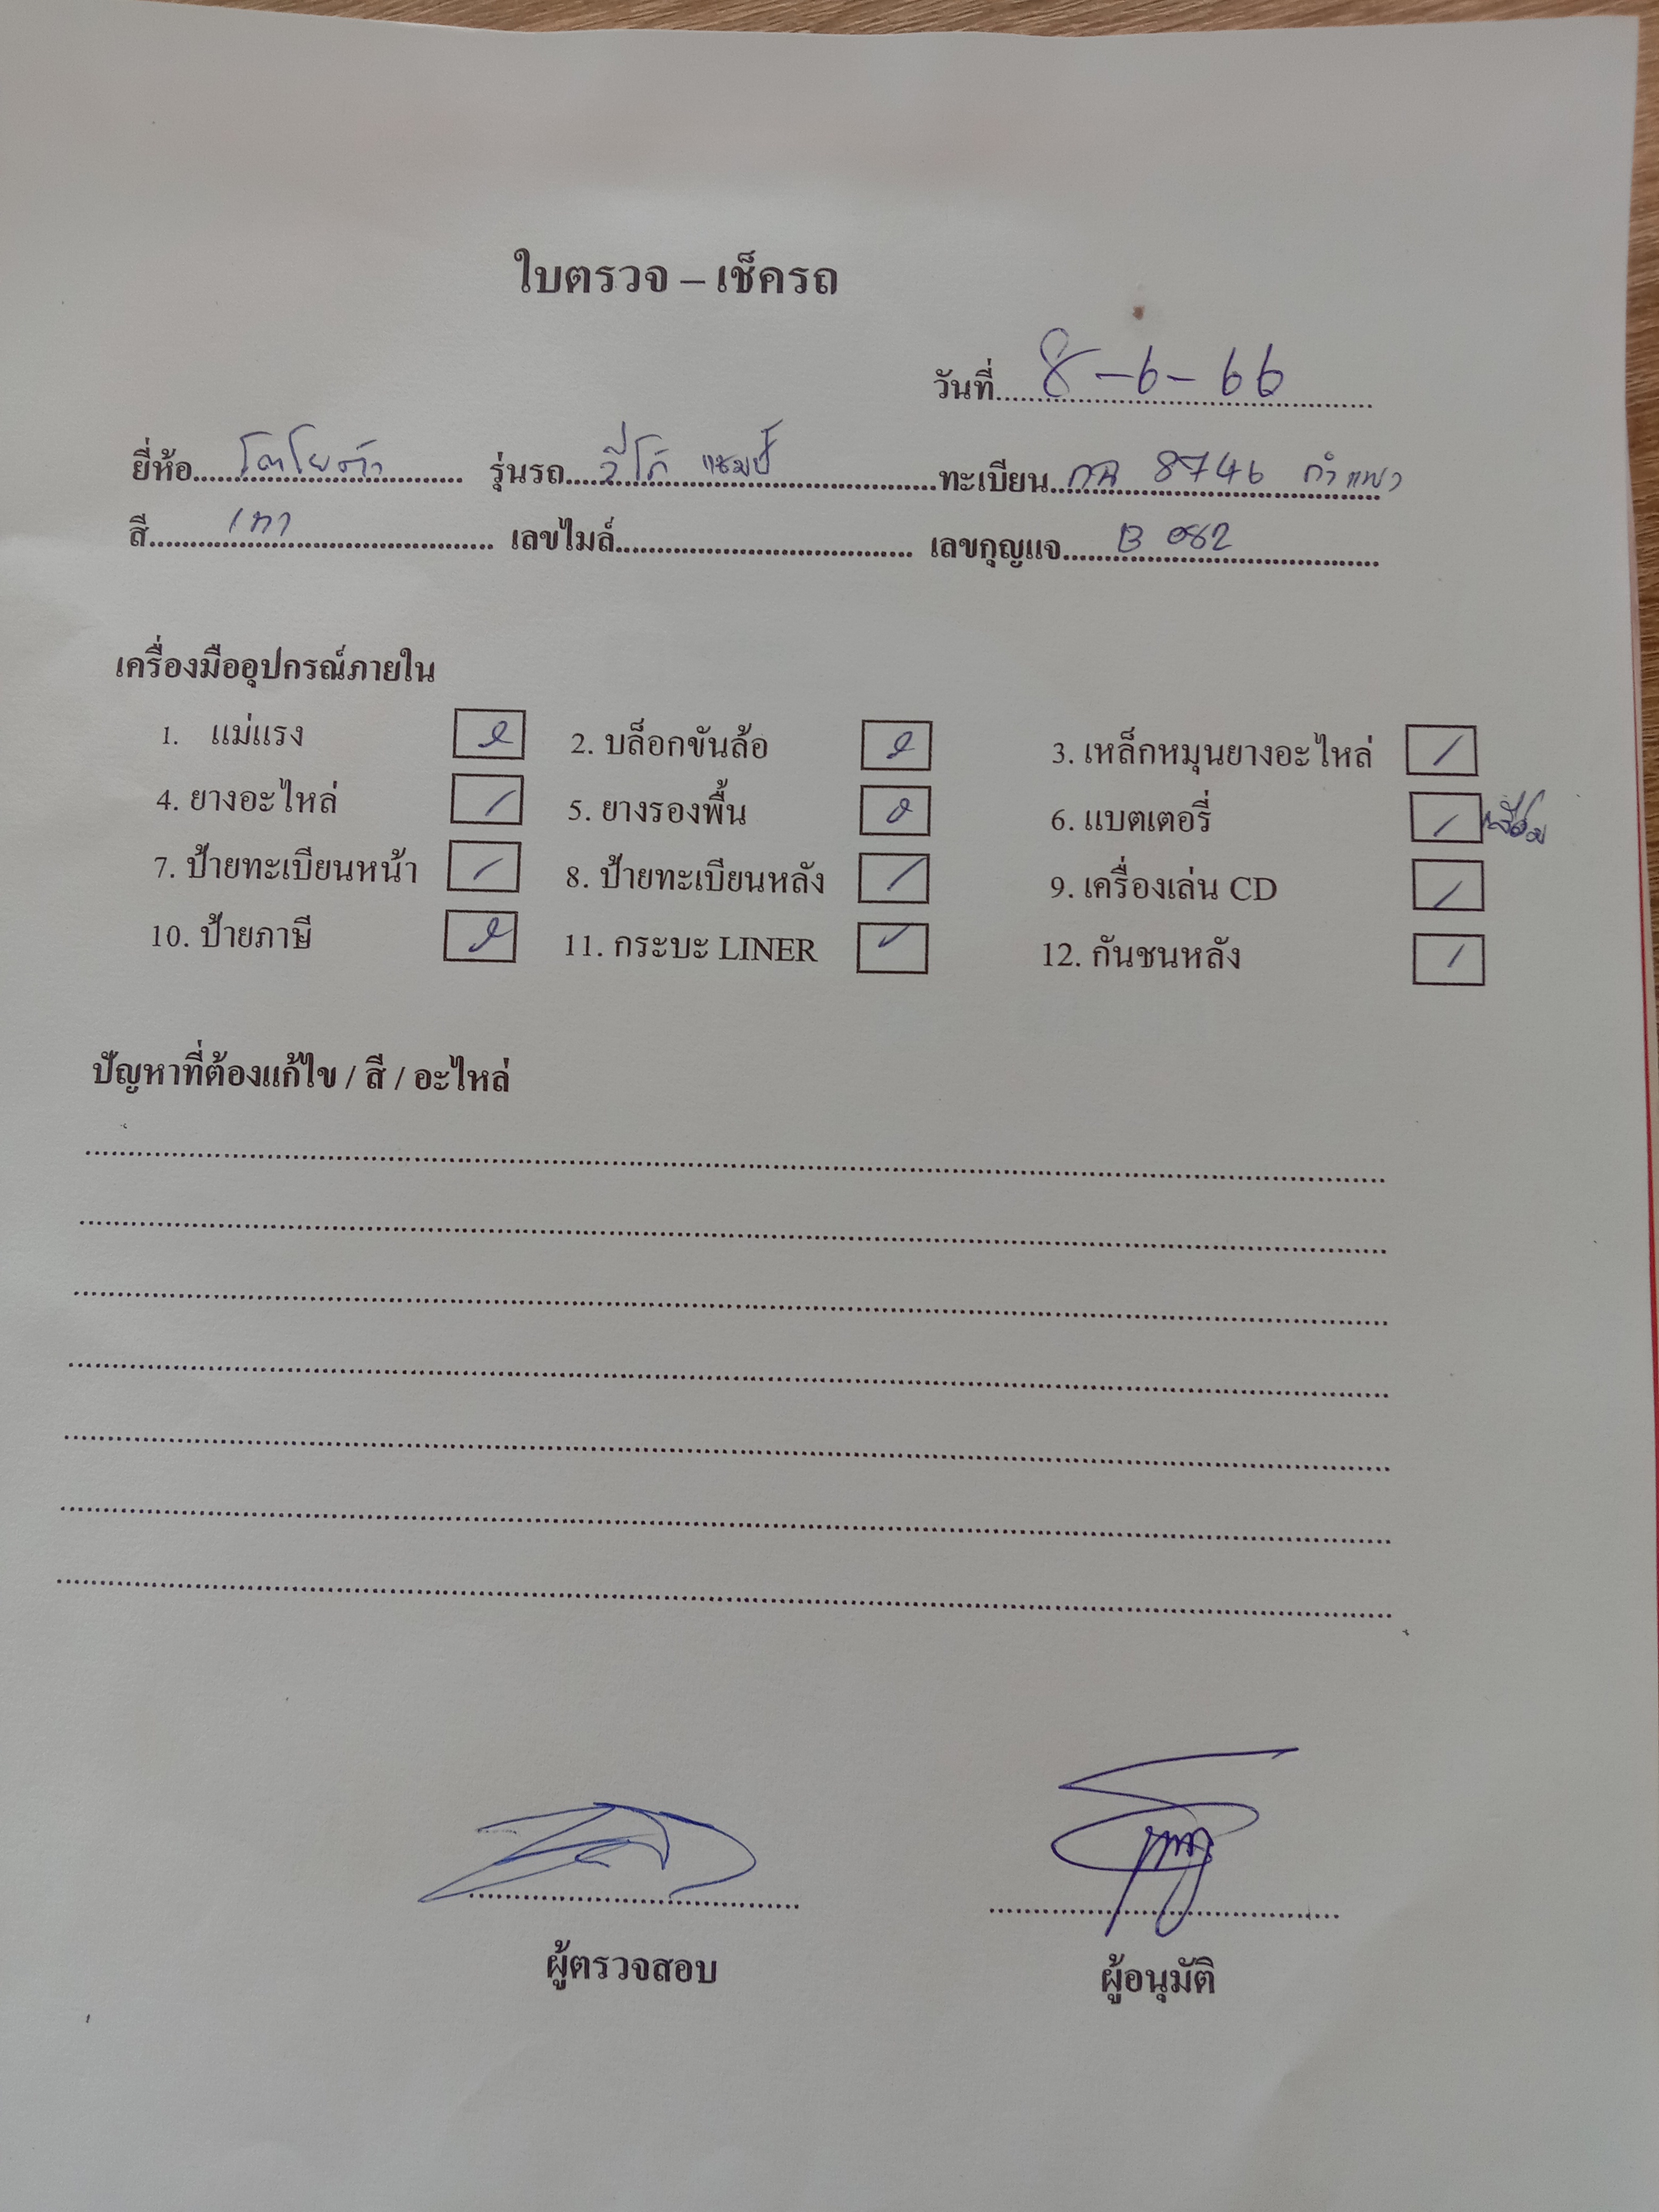 ใบตรวจ – เช็ครถ
วันที่ 8-6-66
ยี่ห้อ โตโยต้า รุ่นรถ วีโก้ แชมป์ ทะเบียน 8746 กำแพง
สี เทา เลขไมล์ เลขกุญแจ B 082
เครื่องมืออุปกรณ์ภายใน
1. แม่แรง 2. บล็อกขันล้อ 3. เหล็กหมุนยางอะไหล่ /
4. ยางอะไหล่ / 5. ยางรองพื้น 6. แบตเตอรี่ /
7. ป้ายทะเบียนหน้า / 8. ป้ายทะเบียนหลัง / 9. เครื่องเล่น CD /
10. ป้ายภาษี 11. กระบะ LINER / 12. กันชนหลัง /
ปัญหาที่ต้องแก้ไข / สี / อะไหล่
ผู้ตรวจสอบ ผู้อนุมัติ